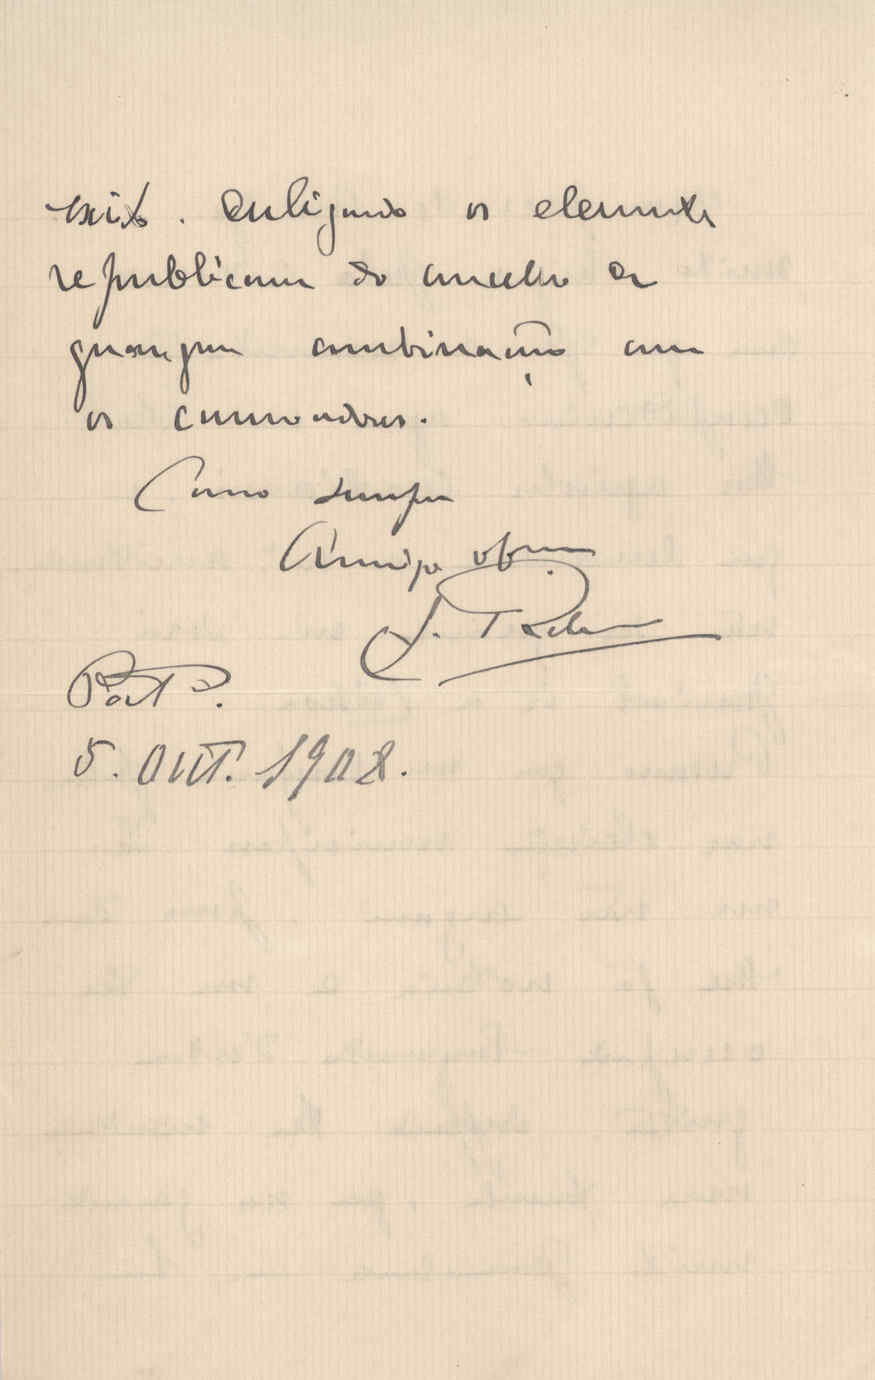 exito. Desligando os elementos
republicanos do concelho de
quaesquer combinação com
os conservadores.
Como sempre
Amigo obr.
Porto.
5. OUT. 1908.